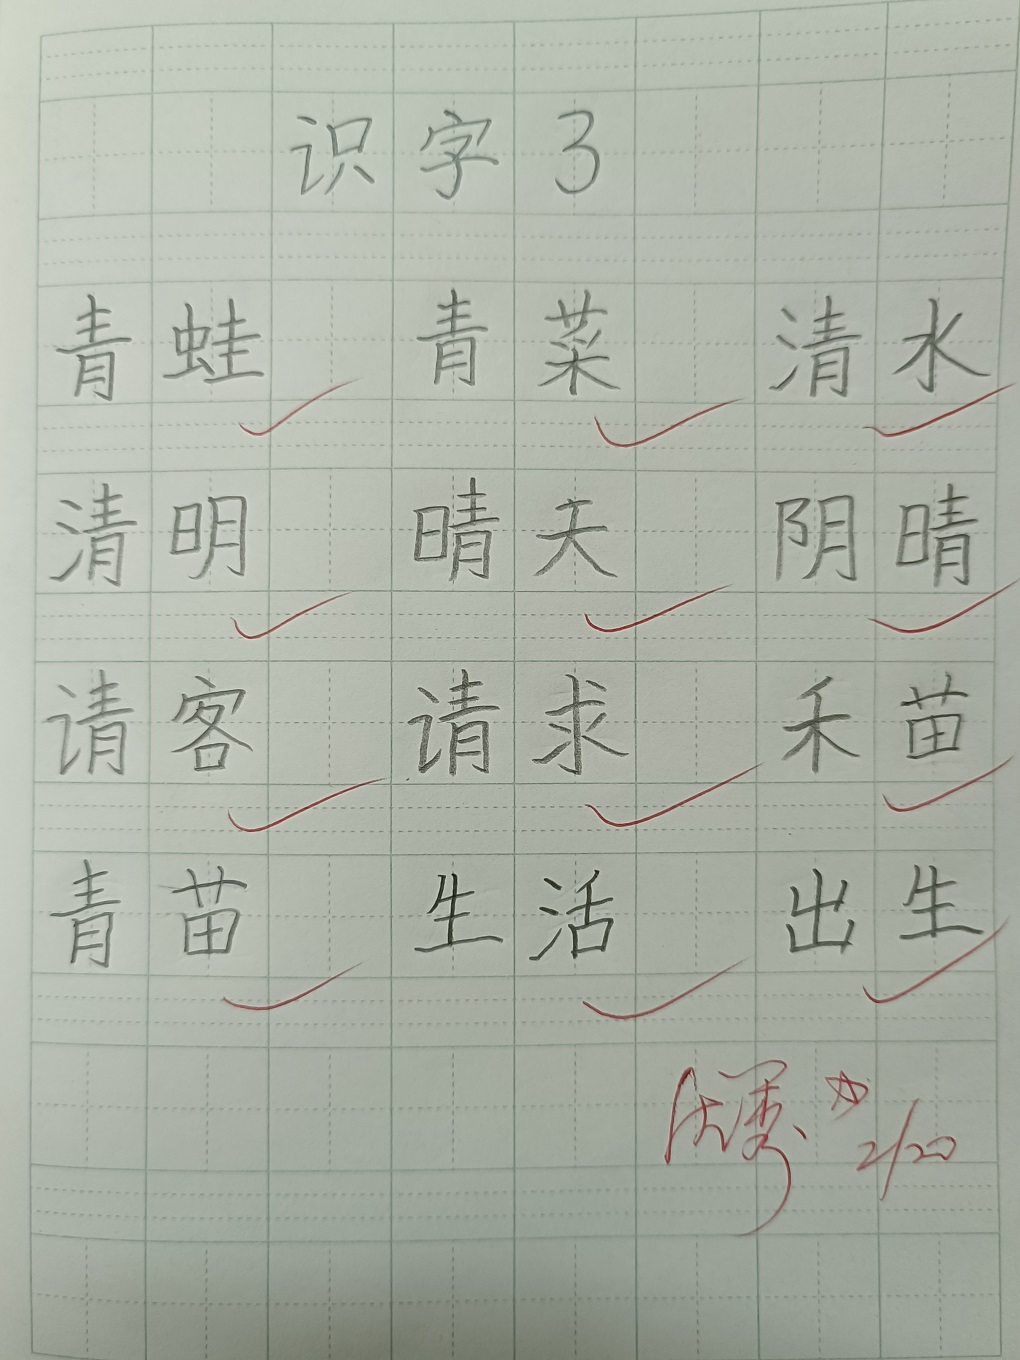 识字3
青蛙 青菜 清水
清明 晴天 阴晴
请客 请求 禾苗
青苗 生活 出生
优秀 2/20